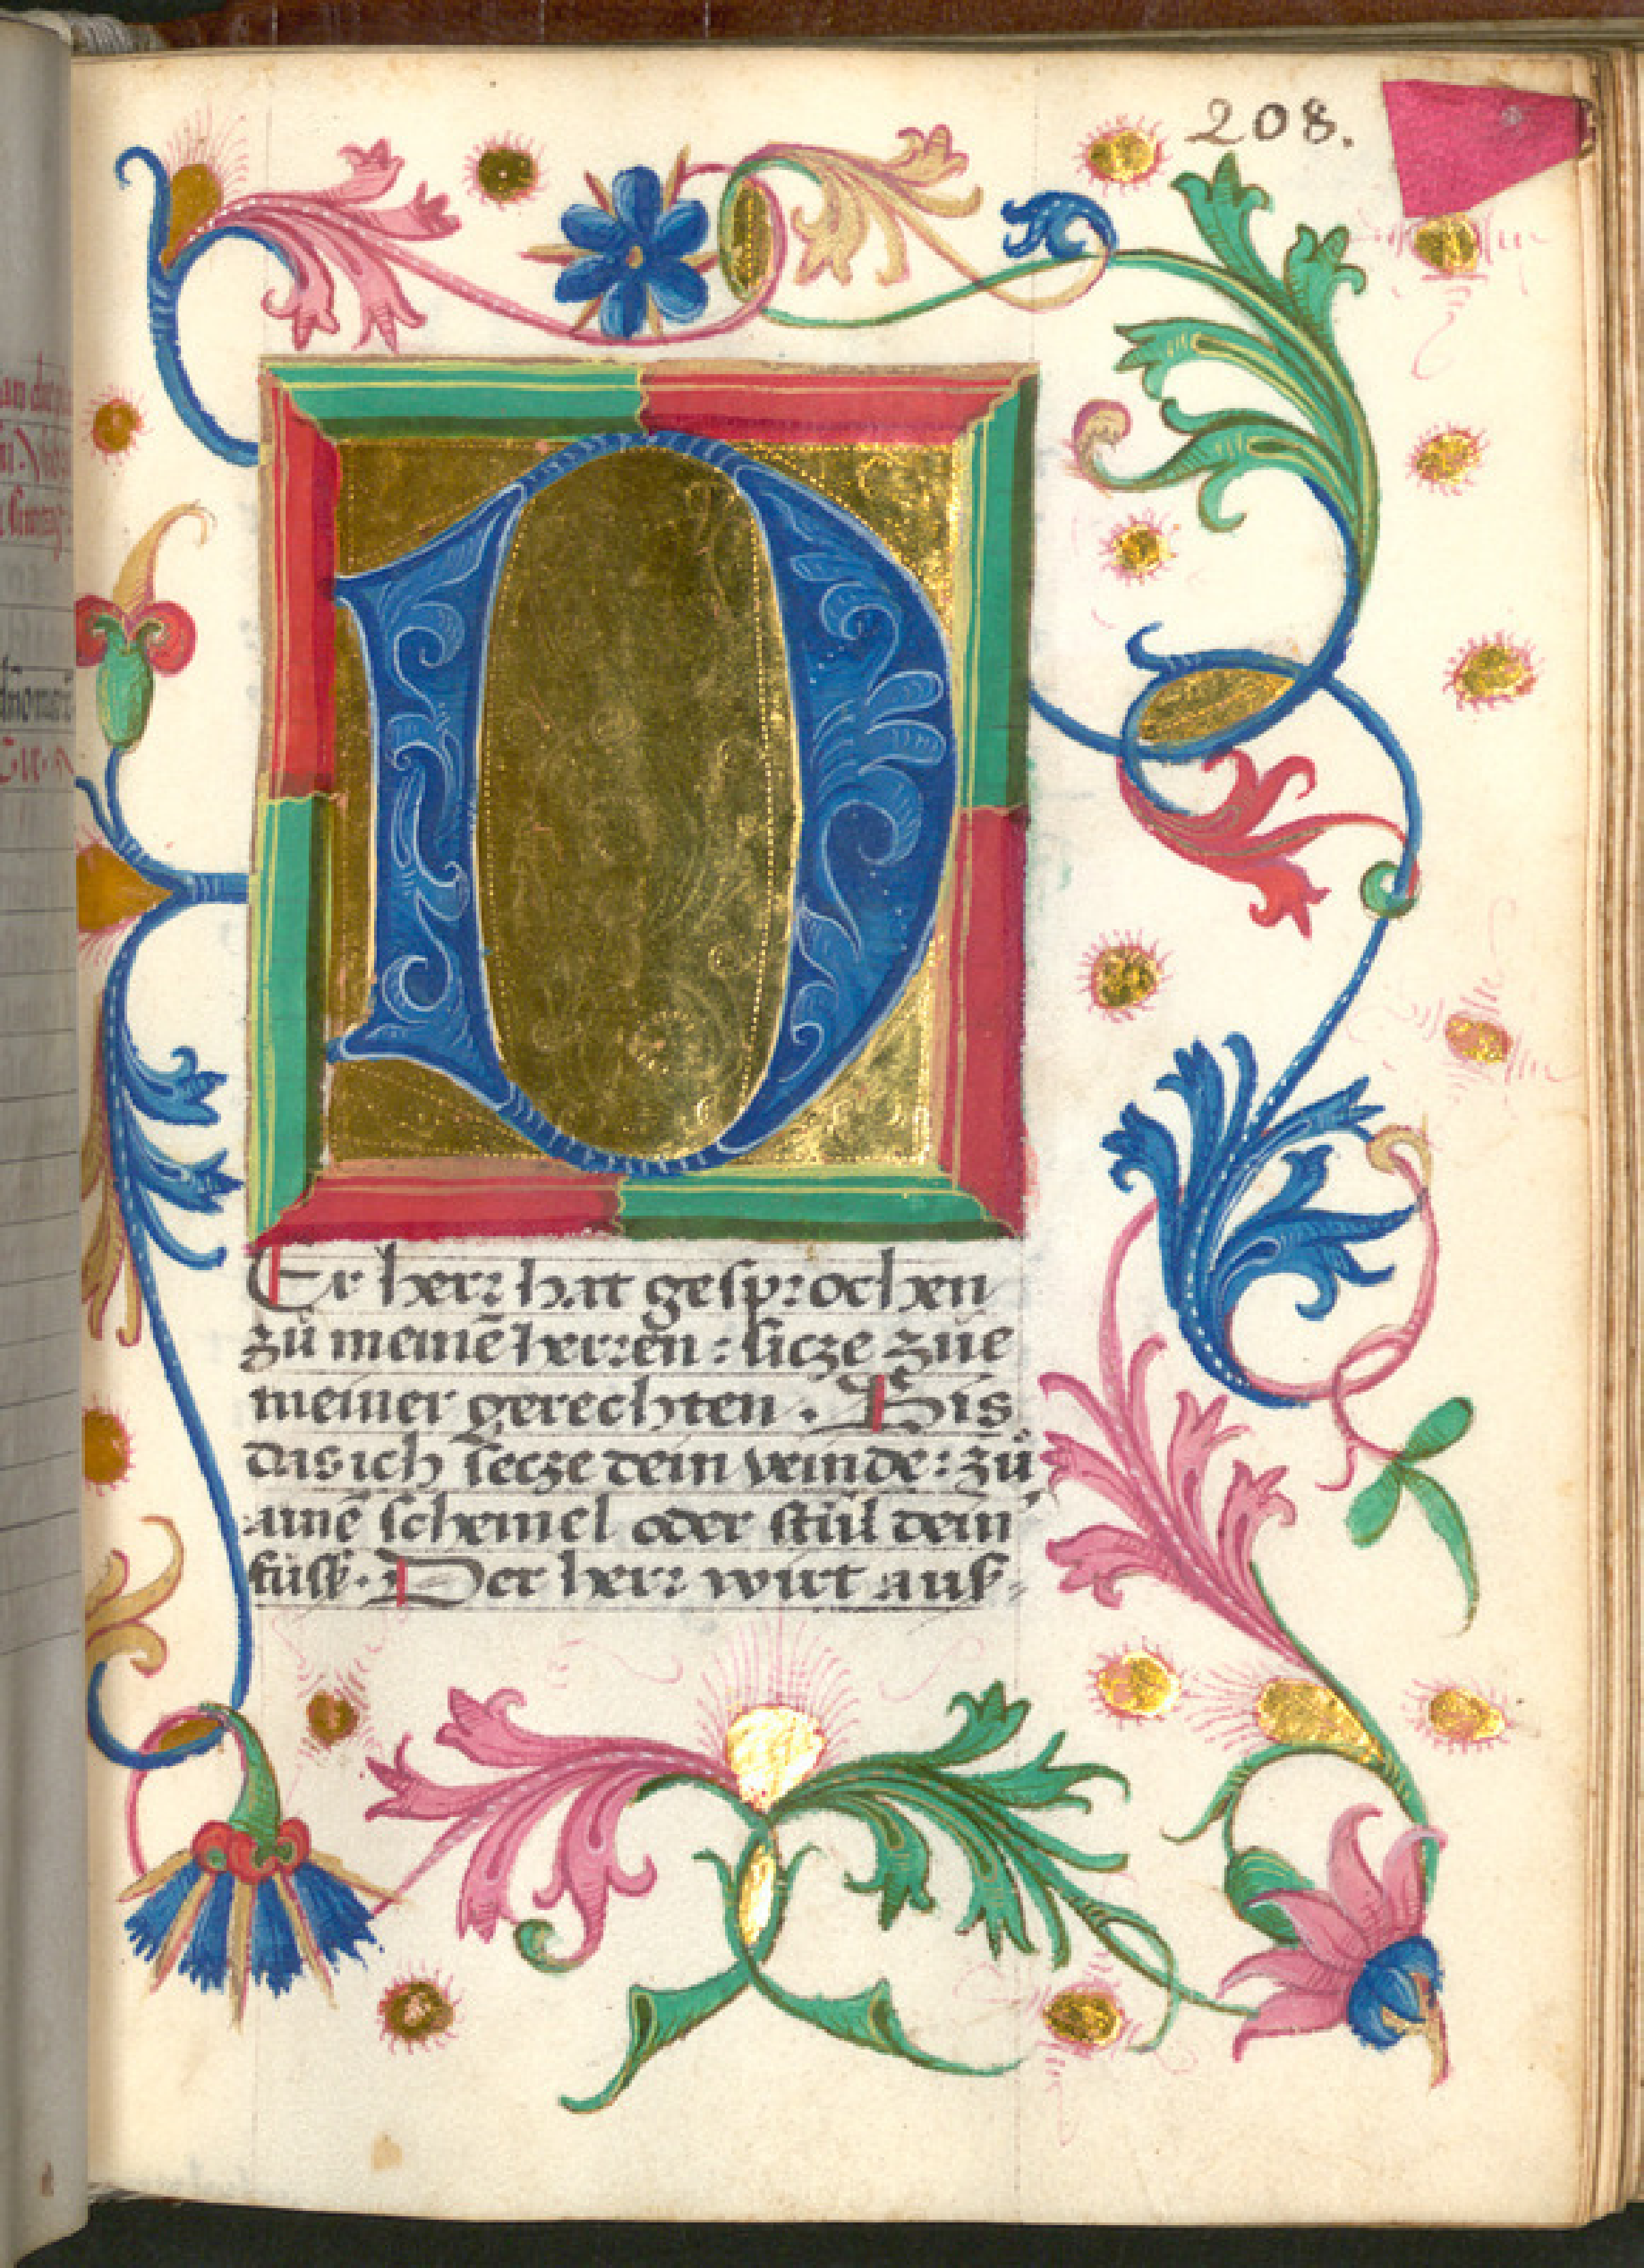 208.
D
Er herr hat gesprochen
zů meinē herren : sicze zue
meiner gerechten . Bis
das ich secze dein veinde : zů
ainē schemel oder stůl dein'
füss . Der herr wirt aus=